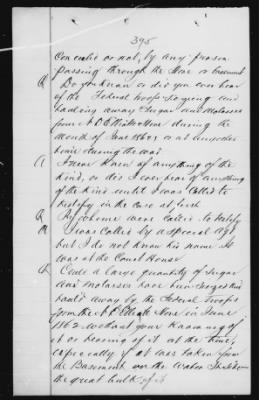 395
Concealed or not, by any person
passing through the Store or basement
Q Do you know or did you ever hear
of the Federal troops seizing and
hauling away Sugar and Molasses
from A C Elliotts Store during the
month of June 1862, or at any other
time during the war
A I never knew of anything of the
kind, or did I ever hear of anything
of the kind until I was called to
testify in the case at first
Q By whom were called to testify
A I was called by a special Agt.
but I do not know his name It
was at the Court House
Q Could a large quantity of Sugar
and Molasses have been seized and
hauled away by the Federal troops
from the A C Elliott Store in June
1862 without your knowing of
it or hearing of it at the time,
especially if it was taken from
the Basement on the Water Side
the great bulk of it